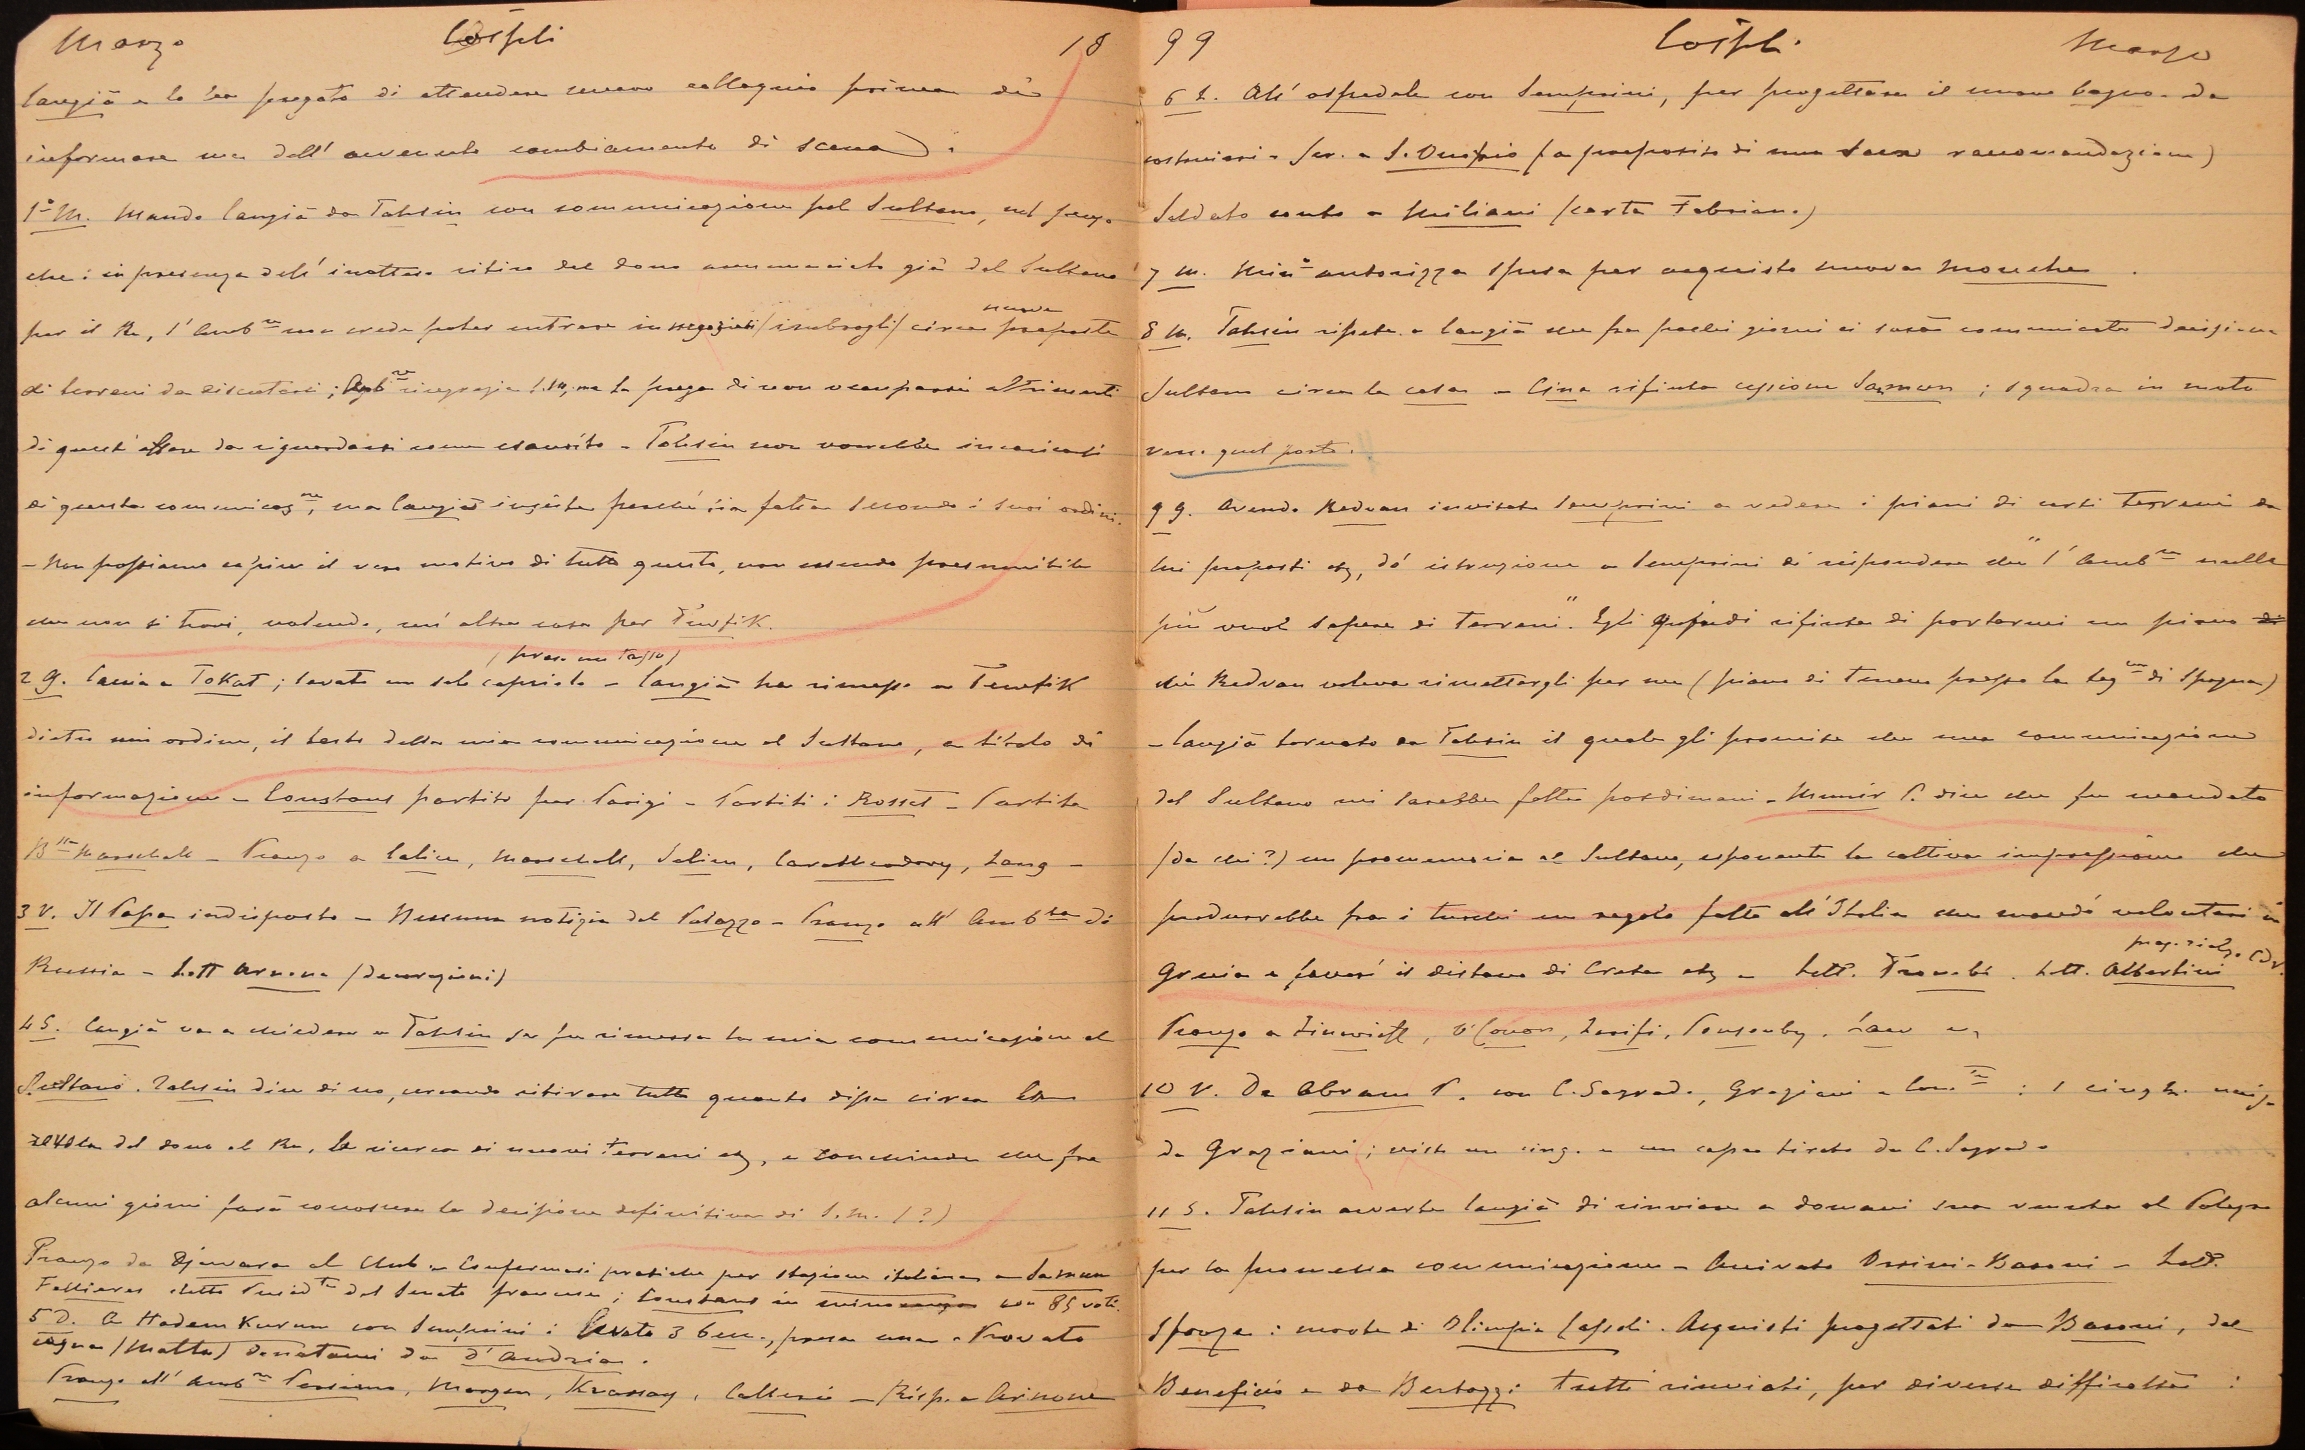 Marzo Cospli 18
Langià e lo ha pregato di attendere nuovo colloquio prima di
informare me dell' avvenuto cambiamento di scena).
1° M. Mando Langià da Tahsin con comunicazione pel Sultano, nel senso
che: in presenza dell' inatteso ritiro del dono annunciato già dal Sultano
nuove
per il Re, l' Amb.re non crede poter entrare in negoziati /imbrogli/ circa proposte
di terreni da discutersi; Amb.re ringrazia S.M., ma la prega di non occuparsi altrimenti
di quest' affare da riguardarsi come esaurito – Tahsin non vorrebbe incaricarsi
di questa comunicaz.ne, ma Langià insiste perché sia fatta secondo i suoi ordini.
– Non possiamo capire il vero motivo di tutto questo, non essendo presumibile
che non si trovi, volendo, un' altra casa per Tewfik.
(preso un tasso)
2 G. Caccia a Tokat; levato un solo capriolo – Langià ha rimesso a Tewfik
dietro mio ordine, il testo della mia comunicazione al Sultano, a titolo di
informazione – Constans partito per Parigi – Partiti i Rosset – Partita
B.ssa Marschall – Pranzo a Calice, Marschall, Selim, Carathéodory, Lang –
3 V. Il Papa indisposto – Nessuna notizia dal Palazzo – Pranzo all' Amb.ta di
Russia – Lett Arnone (decorazioni)
4 S. Langià va a chiedere a Tahsin se fu rimessa la mia comunicazione al
Sultano. Tahsin dice di no, cercando ritirare tutto quanto disse circa
del dono al Re, la ricerca di nuovi terreni etc, e conchiude che fra
alcuni giorni farà conoscere la decisione definitiva di S.M. (?)
Pranzo da Djevvara al Club – Confermasi pratiche per stazione italiana a Samun
Fallières eletto Presid.te del Senato francese; Constans in minoranza con 85 voti.
5 D. A Hadem Kurun con Semprini: levate 3 becc., presa una – Trovato
cagna (Matta) donatami da d'Andria.
Pranzo all' Amb.re Persiano, Morgen, Krassay, Calleri – Risp. a Arnone
99 Cospli Marzo
6 L. All' ospedale con Semprini, per progettare il nuovo bagno da
costruirsi – Scr. a S. Onofrio (a proposito di una sua raccomandazione)
Saldato conto a Miliani (carta Fabriano)
7 M. Min.o autorizza spesa per acquisto nuova mouche.
8 M. Tahsin ripete a Langià che fra pochi giorni ci sarà comunicata decisione
Sultano circa la casa – Cina rifiuta cessione Sanmun; squadra in moto
verso quel porto.
9 G. Avendo Redvan invitato Semprini a vedere i piani di certi terreni da
lui proposti etc, dò istruzione a Semprini di rispondere che "l' Amb.re nulla
più vuol sapere di terreni". Egli quindi rifiuta di portarmi un piano
che Redvan voleva rimettergli per me (piano di terreno presso la Leg.ne di Spagna)
– Langià tornato da Tahsin il quale gli promise che una comunicazione
del Sultano mi sarebbe fatta posdimani – Munir P. dice che fu mandato
(da chi?) un promemoria al Sultano, esponente la cattiva impressione che
produrrebbe fra i turchi un regalo fatto all' Italia che mandò volontari in
Grecia e favorì il distacco di Creta etc – Lett. . Lett. Albertini
Pranzo a Zinovieff, O'Conor, Zarifi, Ponsonby,
10 V. Da Abram P. con C. Sagrado, Graziani e : 1 cingh. ucciso
da Graziani; visto un cing. e un capr. tirato da C. Sagrado
11 S. Tahsin avverte Langià di rinviare a domani sua venuta al Palazzo
per la promessa comunicazione – Arrivato Orsini-Baroni – Lett.
Sforza: morte di Olimpia Cassoli. Acquisti progettati da Baroni, dal
Beneficio e da Bertozzi tutti rinviati, per diverse difficoltà: